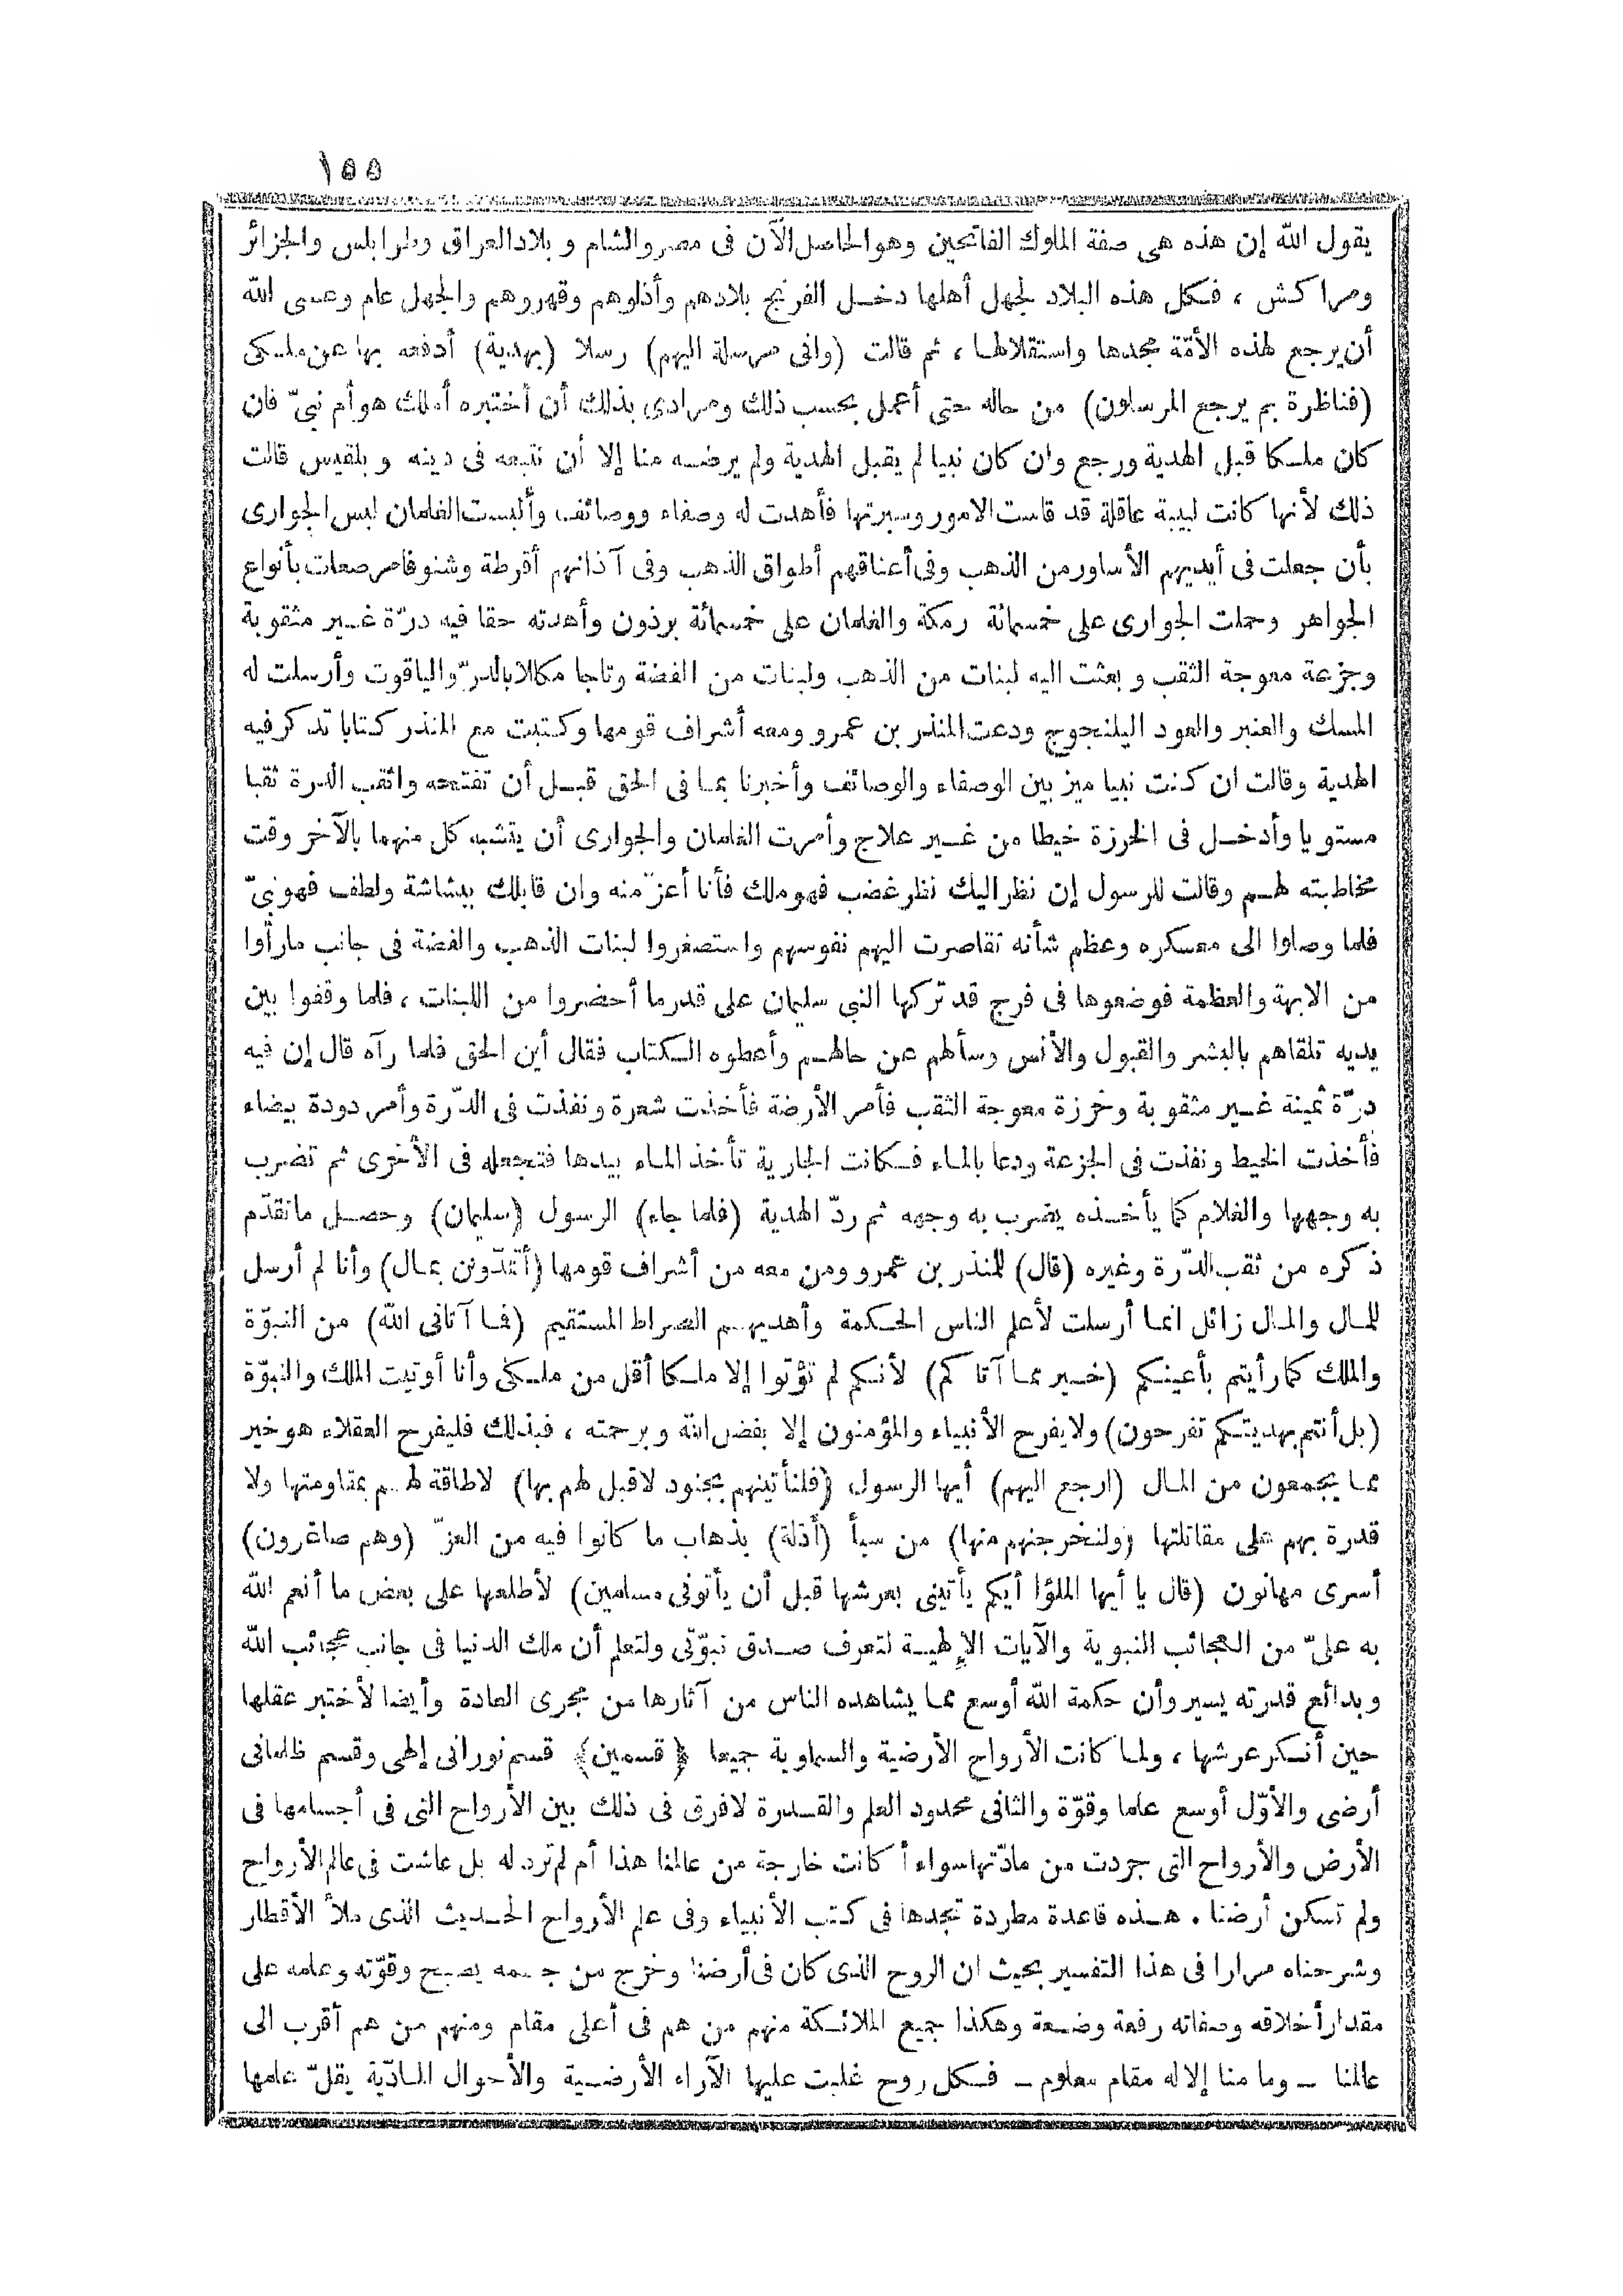 ١٥٥
يقول الله إن هذه هى صفة الملوك الفاتحين وهو الحاصل الآن فى مصر والشام وبلاد العراق وطرابلس والجزائر
ومراكش ، فكل هذه البلاد لجهل أهلها دخل الفرنج بلادهم وأذلوهم وقهروهم والجهل عام وعسى الله
أن يرجع لهذه الأمّة مجدها واستقلالها ، ثم قالت (وانى مرسلة اليهم) رسلا (بهدية) أدفعه بها عن ملكى
(فناظرة بم يرجع المرسلون) من حاله حتى أعمل بحسب ذلك ومرادى بذلك أن أختبره أملك هو أم نبىّ فان
كان ملكا قبل الهدية ورجع وان كان نبيا لم يقبل الهدية ولم يرضه منا إلا أن نتبعه فى دينه وبلقيس قالت
ذلك لأنها كانت لبيبة عاقلة قد قاست الامور وسبرتها فأهدت له وصفاء ووصائف وألبست الغلمان لبس الجوارى
بأن جعلت فى أيديهم الأساور من الذهب وفى أعناقهم أطواق الذهب وفى آذانهم أقرطة وشنوفا مرصعات بأنواع
الجواهر وحملت الجوارى على خمسمائة رمكة والغلمان على خمسمائة برذون وأهدته حقا فيه درّة غير مثقوبة
وجزعة معوجة الثقب وبعثت اليه لبنات من الذهب ولبنات من الفضة وتاجا مكللا بالدرّ والياقوت وأرسلت له
المسك والعنبر والعود اليلنجوج ودعت المنذر بن عمرو ومعه أشراف قومها وكتبت مع المنذر كتابا تذكر فيه
الهدية وقالت ان كنت نبيا ميز بين الوصفاء والوصائف وأخبرنا بما فى الحق قبل أن تفتحه واثقب الدرة ثقبا
مستويا وأدخل فى الخرزة خيطا من غير علاج وأمرت الغلمان والجوارى أن يتشبه كل منهما بالآخر وقت
مخاطبته لهم وقالت للرسول إن نظر اليك نظر غضب فهو ملك فأنا أعزّ منه وان قابلك ببشاشة ولطف فهو نبىّ
فلما وصلوا الى معسكره وعظم شأنه تقاصرت اليهم نفوسهم واستصغروا لبنات الذهب والفضة فى جانب مارأوا
من الابهة والعظمة فوضعوها فى فرج قد تركها النبى سليمان على قدر ما أحضروا من اللبنات ، فلما وقفوا بين
يديه تلقاهم بالبشر والقبول والأنس وسألهم عن حالهم وأعطوه الكتاب فقال أين الحق فلما رآه قال إن فيه
درّة ثمينة غير مثقوبة وخرزة معوجة الثقب فأمر الأرضة فأخذت شعرة ونفذت فى الدّرة وأمر دودة بيضاء
فأخذت الخيط ونفذت فى الجزعة ودعا بالماء فكانت الجارية تأخذ الماء بيدها فتجعله فى الأخرى ثم تضرب
به وجهها والغلام كما يأخذه يضرب به وجهه ثم ردّ الهدية (فلما جاء) الرسول (سليمان) وحصل ماتقدّم
ذكره من ثقب الدّرة وغيره (قال) للمنذر بن عمرو ومن معه من أشراف قومها (أتمدّونن بمال) وأنا لم أرسل
للمال والمال زائل انما أرسلت لأعلم الناس الحكمة وأهديهم الصراط المستقيم (فما آتانى الله) من النبوّة
والملك كما رأيتم بأعينكم (خير مما آتاكم) لأنكم لم تؤتوا إلا ملكا أقل من ملكى وأنا أوتيت الملك والنبوّة
(بل أنتم بهديتكم تفرحون) ولا يفرح الأنبياء والمؤمنون إلا بفضل الله وبرحمته ، فبذلك فليفرح العقلاء هو خير
مما يجمعون من المال (ارجع اليهم) أيها الرسول (فلنأتينهم بجنود لاقبل لهم بها) لاطاقة لهم بمقاومتها ولا
قدرة بهم على مقاتلتها (ولنخرجنهم منها) من سبأ (أذلة) بذهاب ما كانوا فيه من العزّ (وهم صاغرون)
أسرى مهانون (قال يا أيها الملؤا أيكم يأتينى بعرشها قبل أن يأتونى مسلمين) لأطلعها على بعض ما أنعم الله
به علىّ من العجائب النبوية والآيات الإلهية لتعرف صدق نبوّتى ولتعلم أن ملك الدنيا فى جانب عجائب الله
وبدائع قدرته يسير وأن حكمة الله أوسع مما يشاهده الناس من آثارها من مجرى العادة وأيضا لأختبر عقلها
حين أنكر عرشها ، ولما كانت الأرواح الأرضية والسماوية جميعا ﴿قسمين﴾ قسم نورانى إلهى وقسم ظلمانى
أرضى والأوّل أوسع علما وقوّة والثانى محدود العلم والقدرة لافرق فى ذلك بين الأرواح التى فى أجسامها فى
الأرض والأرواح التى جردت من مادّتها سواء أكانت خارجة من عالمنا هذا أم لم ترد له بل عاشت فى عالم الأرواح
ولم تسكن أرضنا . هذه قاعدة مطردة تجدها فى كتب الأنبياء وفى علم الأرواح الحديث الذى ملأ الأقطار
وشرحناه مرارا فى هذا التفسير بحيث ان الروح الذى كان فى أرضنا وخرج من جسمه يصبح وقوّته وعلمه على
مقدار أخلاقه وصفاته رفعة وضعة وهكذا جميع الملائكة منهم من هم فى أعلى مقام ومنهم من هم أقرب الى
عالمنا ــ وما منا إلا له مقام معلوم ــ فكل روح غلبت عليها الآراء الأرضية والأحوال المادّية يقلّ علمها